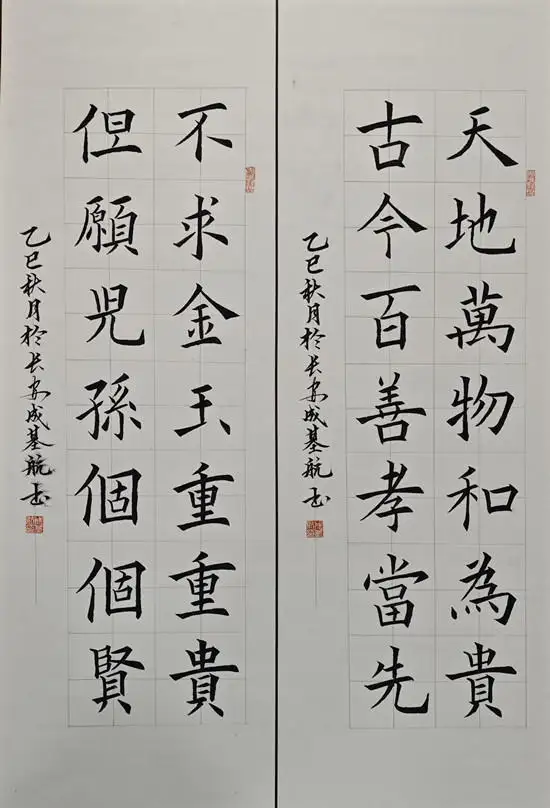 天地萬物和為貴
古今百善孝當先
乙巳秋月於长安成基航书
不求金玉重重貴
但願児孫個個賢
乙巳秋月於长安成基航书